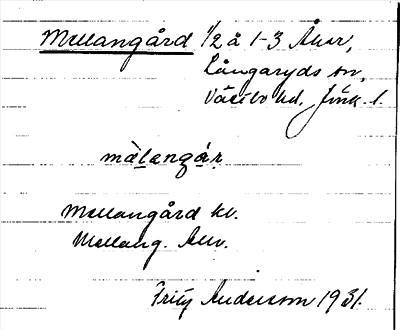 Mellangård 1/2 å 1-3 Åker,
Långaryds sn,
Västbo hd, Jönk. l.
mälangår
Mellangård kv.
Mellang.
Fritz Anderson 1931.